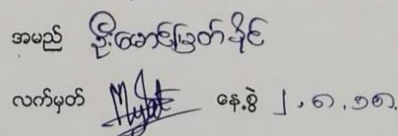 အမည် ဦးမောင်မြတ်ခိုင်
လက်မှတ် နေ့စွဲ ၂.၈.၁၈